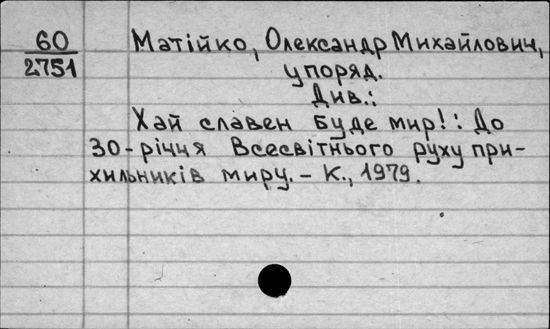 60
2751
Матійко, Олександр Михайлович,
упоряд.
Див.:
Хай славен буде мир!: До
30-річчя Всесвітнього руху при-
хильників миру. – К., 1979.